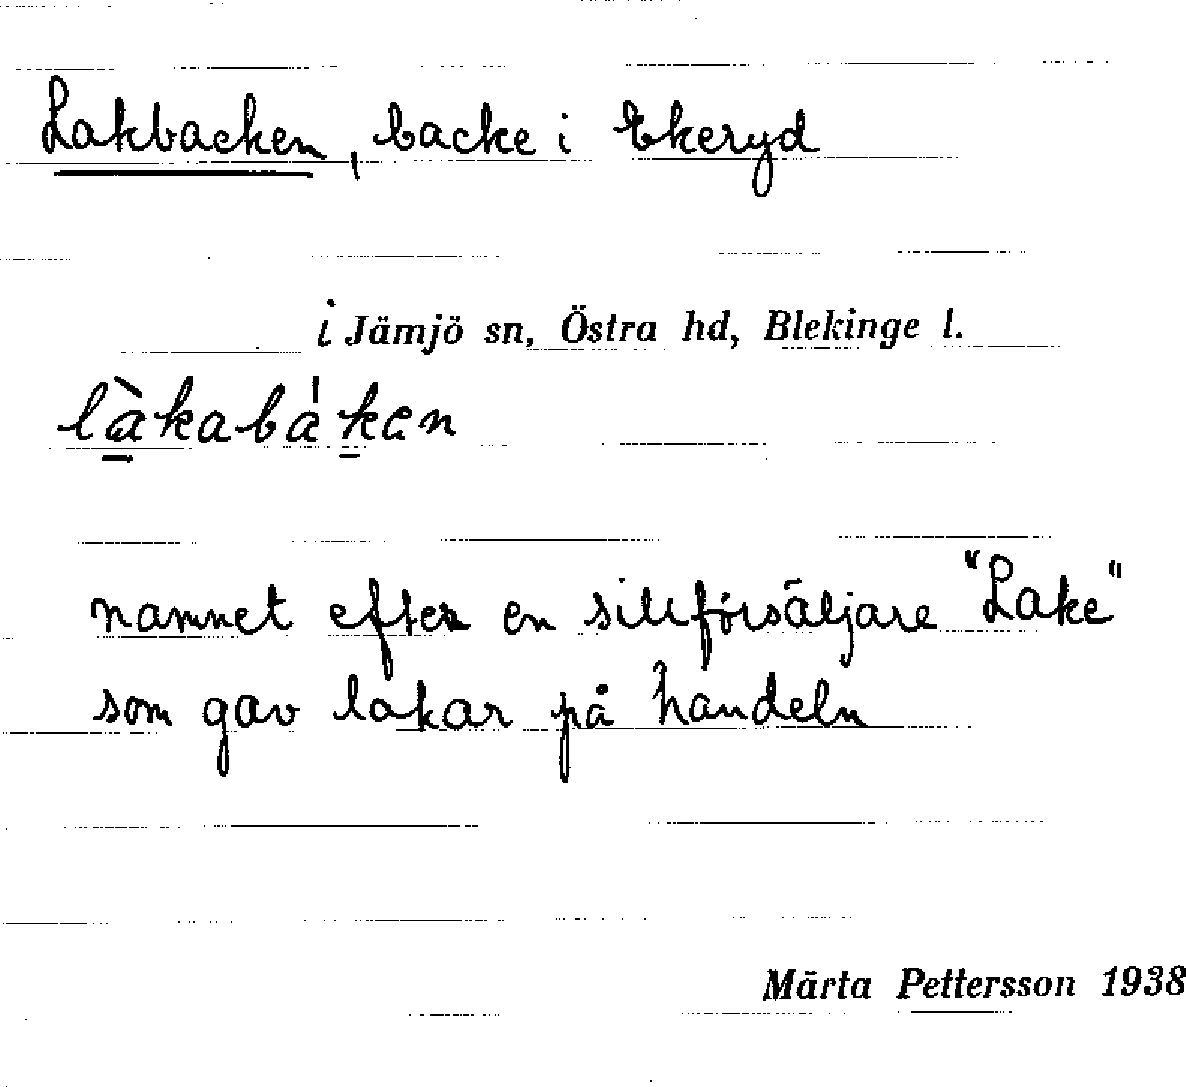 Lakbacken, backe i Ekeryd
i Jämjö sn, Östra hd, Blekinge l.
làkabákən
namnet efter en sillförsäljare "Lake"
som gav lakar på handeln
Märta Pettersson 1938